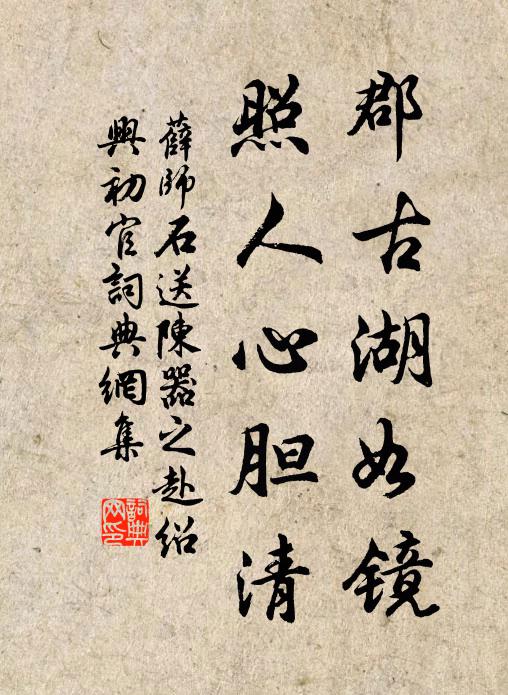 郡古湖如镜
照人心胆清
薛師石送陳器之赴绍
興初官詞典網集
詞典
网印